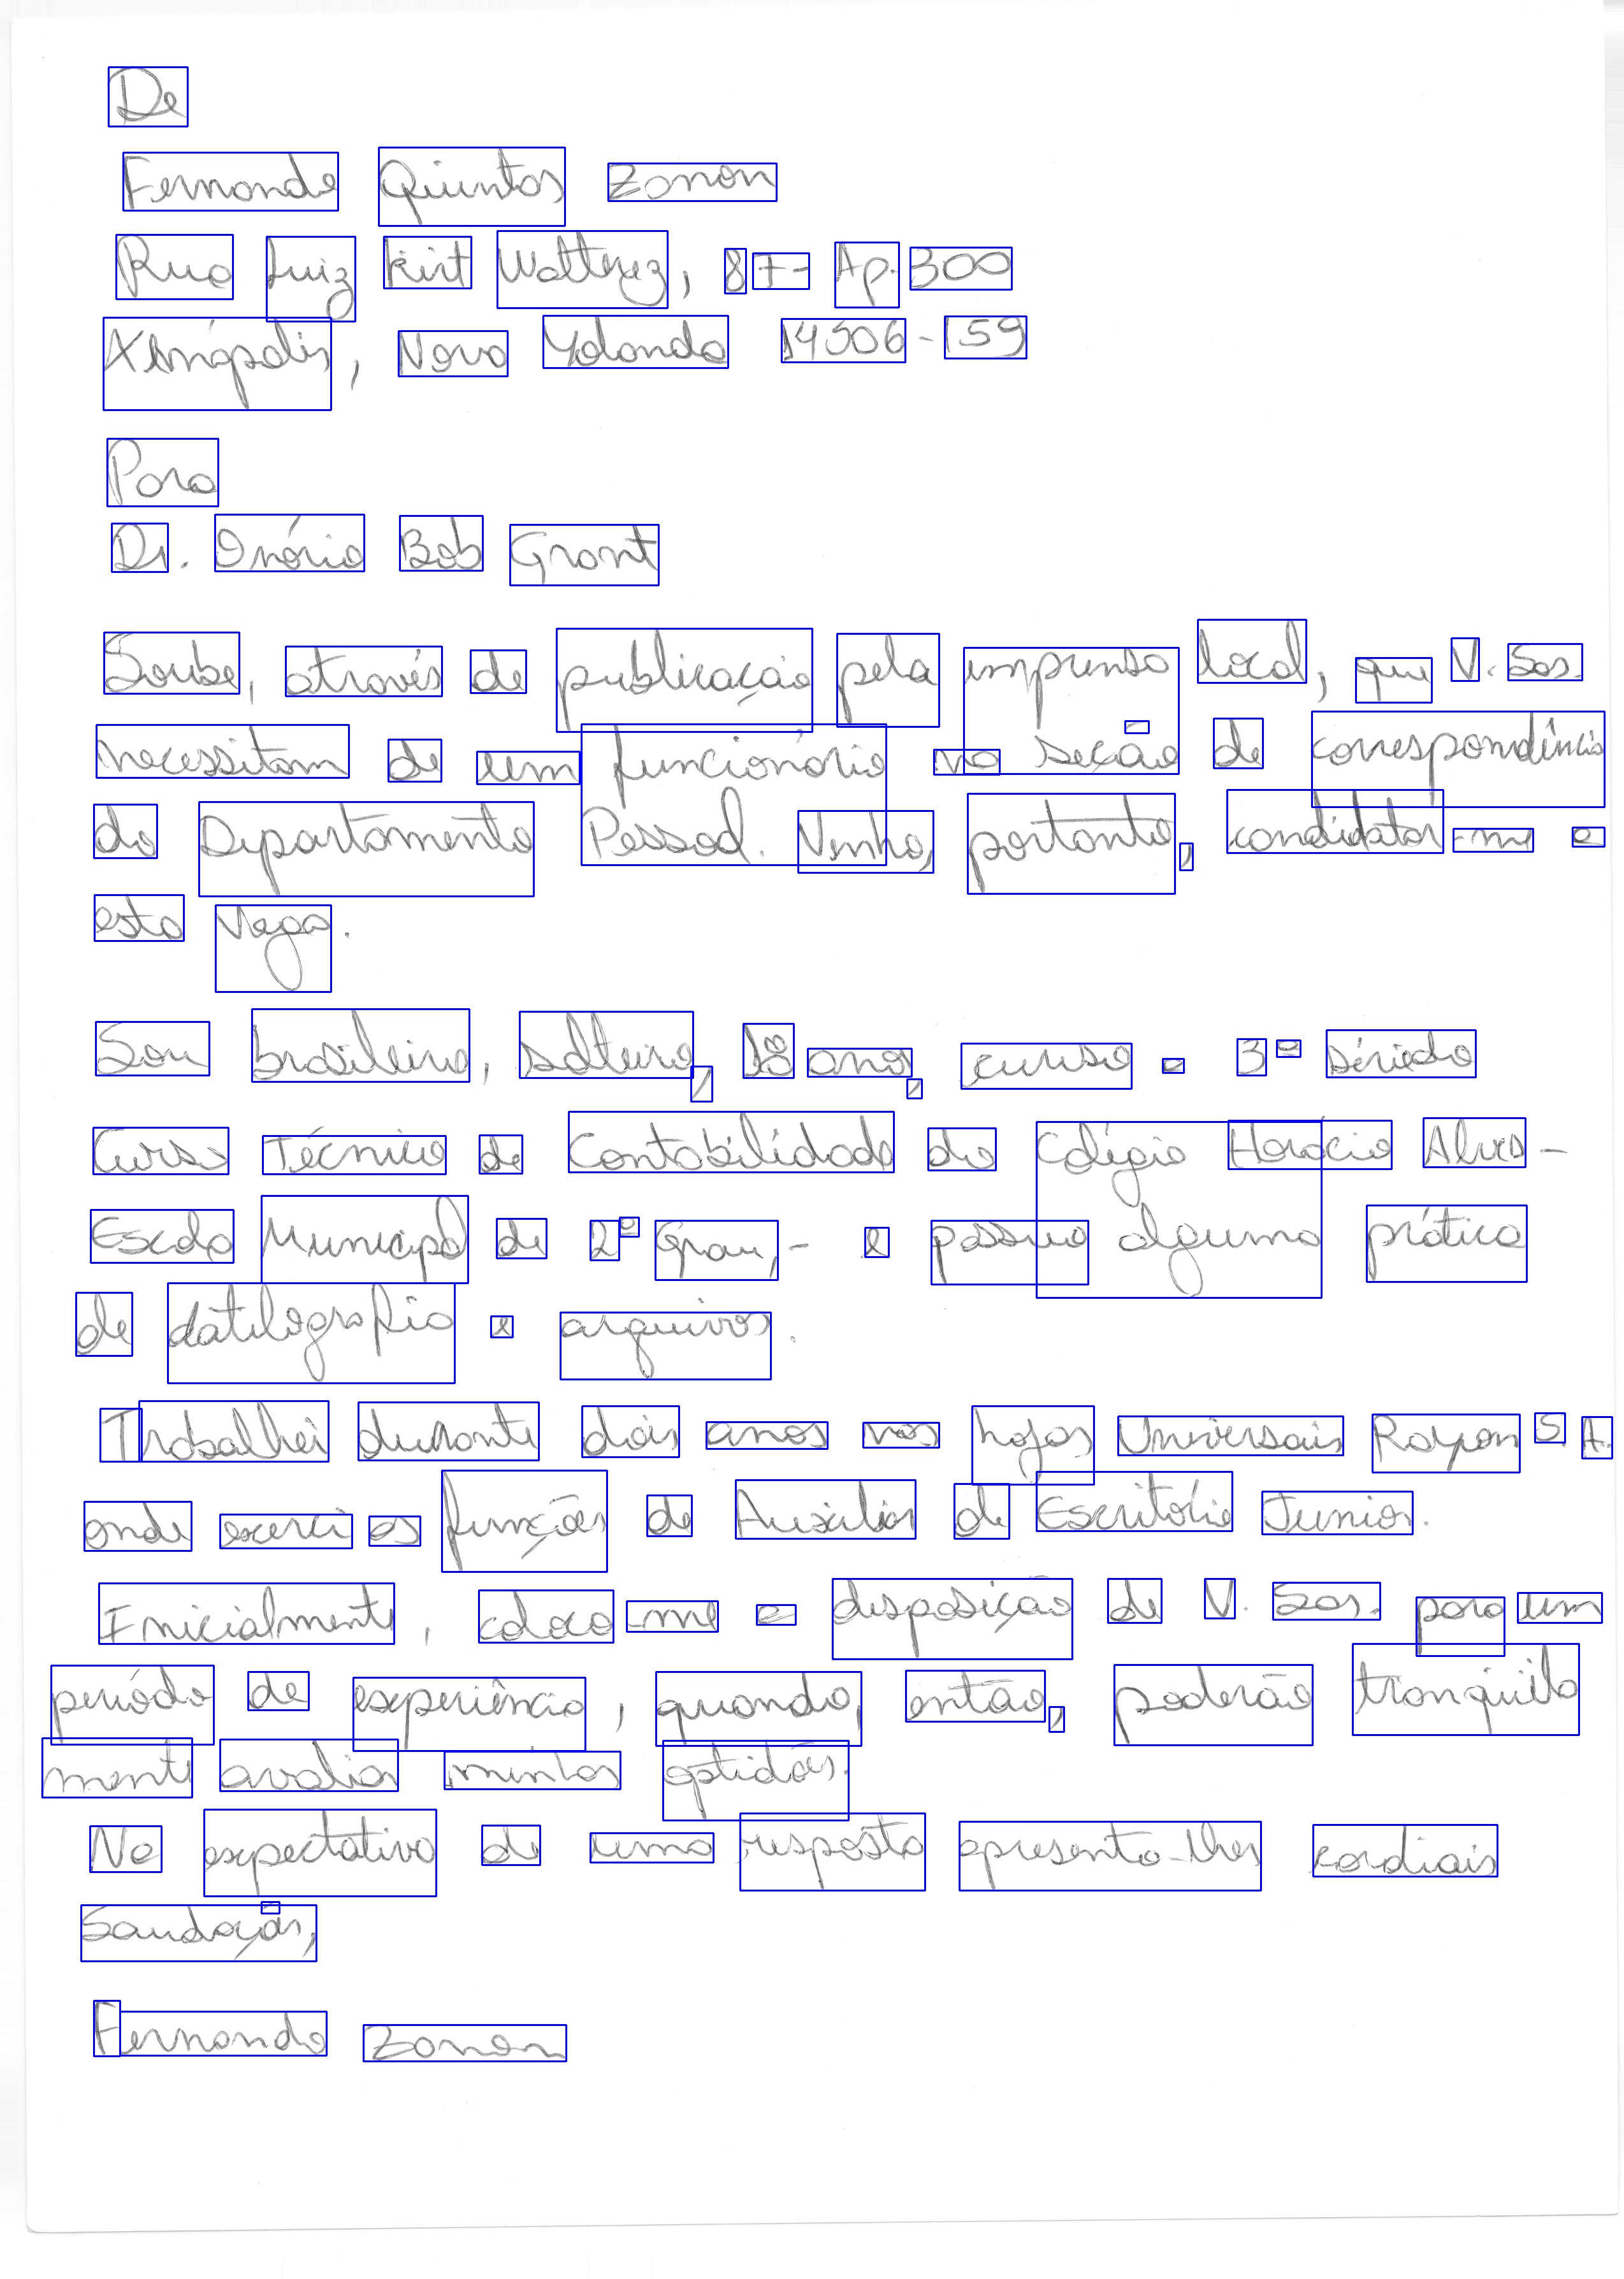 De
Fernando Quintas Zonan
Rua Luiz Kirt Watterez, 87- Ap. 300
Xenópolis, Nova Yolanda 14506-159
Para
Dr. Onório Bob Grant
Soube, através de publicação pela imprensa local, que V. Sas.
necessitam de um funcionário na seção de correspondência
do Departamento Pessoal. Venho, portanto, candidatar-me a
esta Vaga.
Sou brasileiro, solteiro, 18 anos, curso a 3ª série do
Curso Técnico de Contabilidade do Colégio Horácio Alves -
Escola Municipal de 2º Grau, - e possuo alguma prática
de datilografia e arquivos.
Trabalhei durante dois anos nas lojas Universais Rayon S.A.
onde exerci as funções de Auxiliar de Escritório Junior.
Inicialmente, coloco-me a disposição de V. Sas. para um
período de experiência, quando, então, poderão tranquila
mente avaliar minhas aptidões.
Na expectativa de uma resposta apresento-lhes cordiais
Saudações,
Fernando Zonan